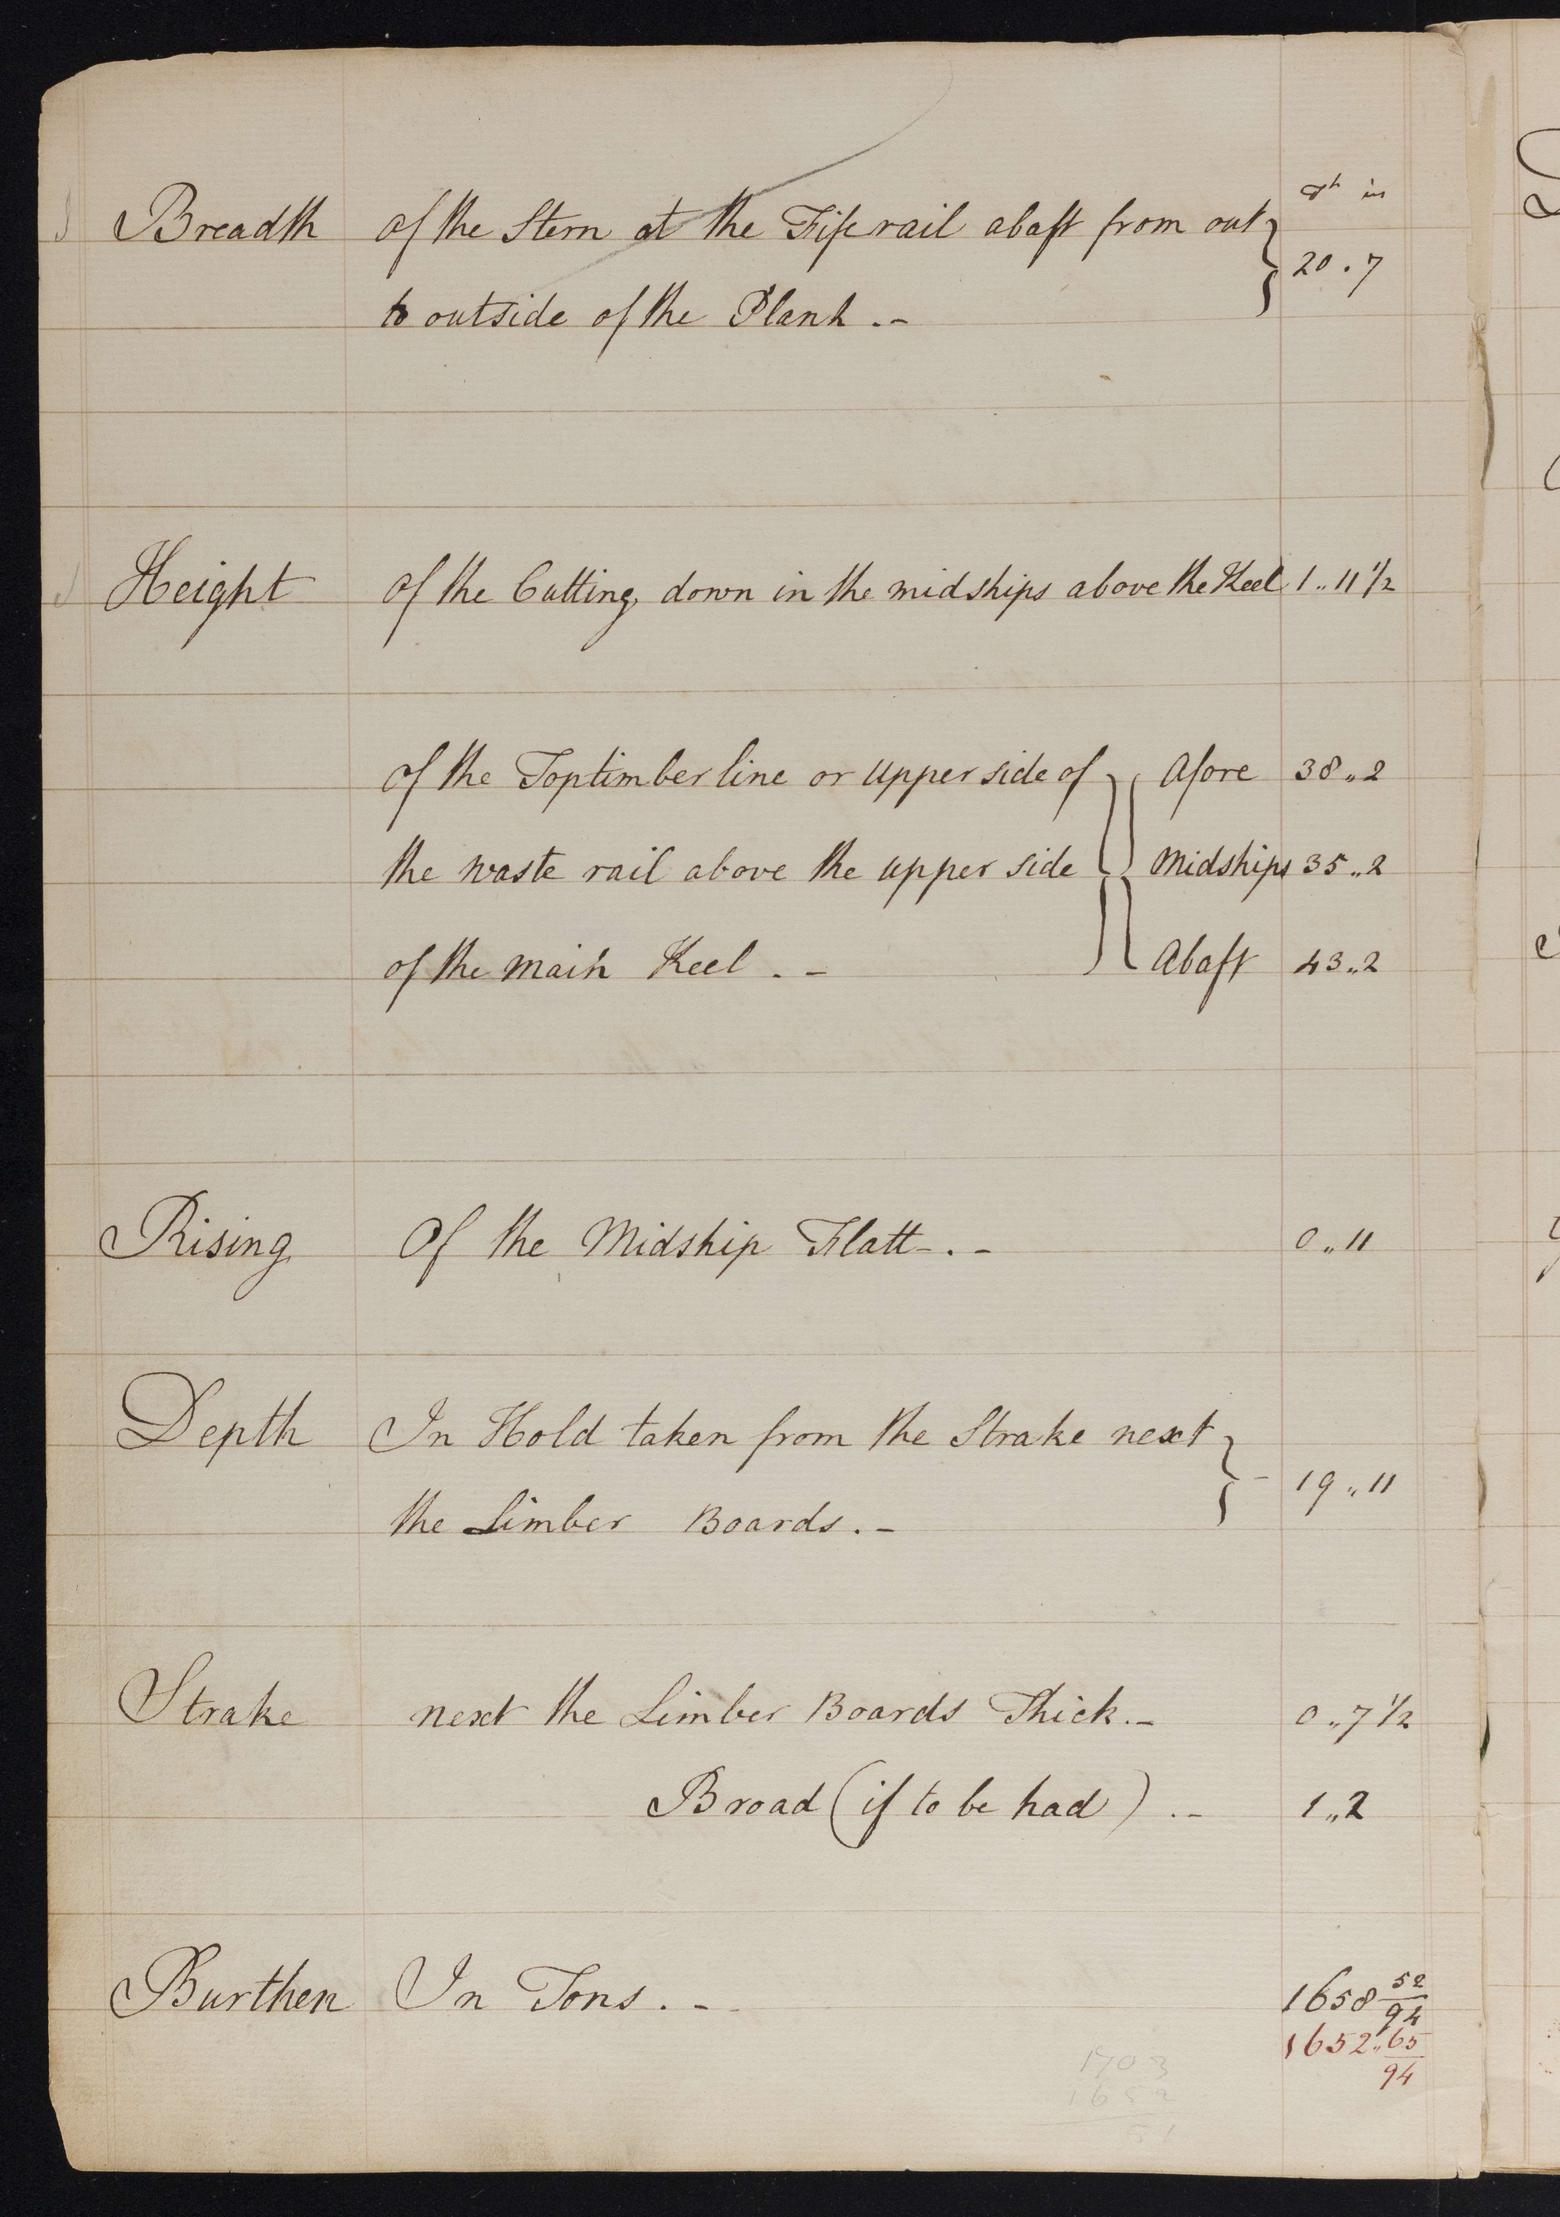 Ft in
Breadth of the Stern at the Fife rail abaft from out
20 . 7
to outside of the Plank . -
Height of the Cutting down in the midships above the Keel 1 .. 11 1/2
of the Toptimber line or upper side of Afore 38 .. 2
the waste rail above the upper side Midships 35 .. 2
of the main Keel . - Abaft 43 .. 2
Rising Of the Midship Flatt - . - 0 .. 11
Depth In Hold taken from the Strake next
- 19 .. 11
the Limber Boards . -
Strake next the Limber Boards Thick . - 0 .. 7 1/2
Broad (if to be had) . - 1 .. 2
Burthen In Tons . - 1658 52/94
1652 .. 65/94
1703
1652
51